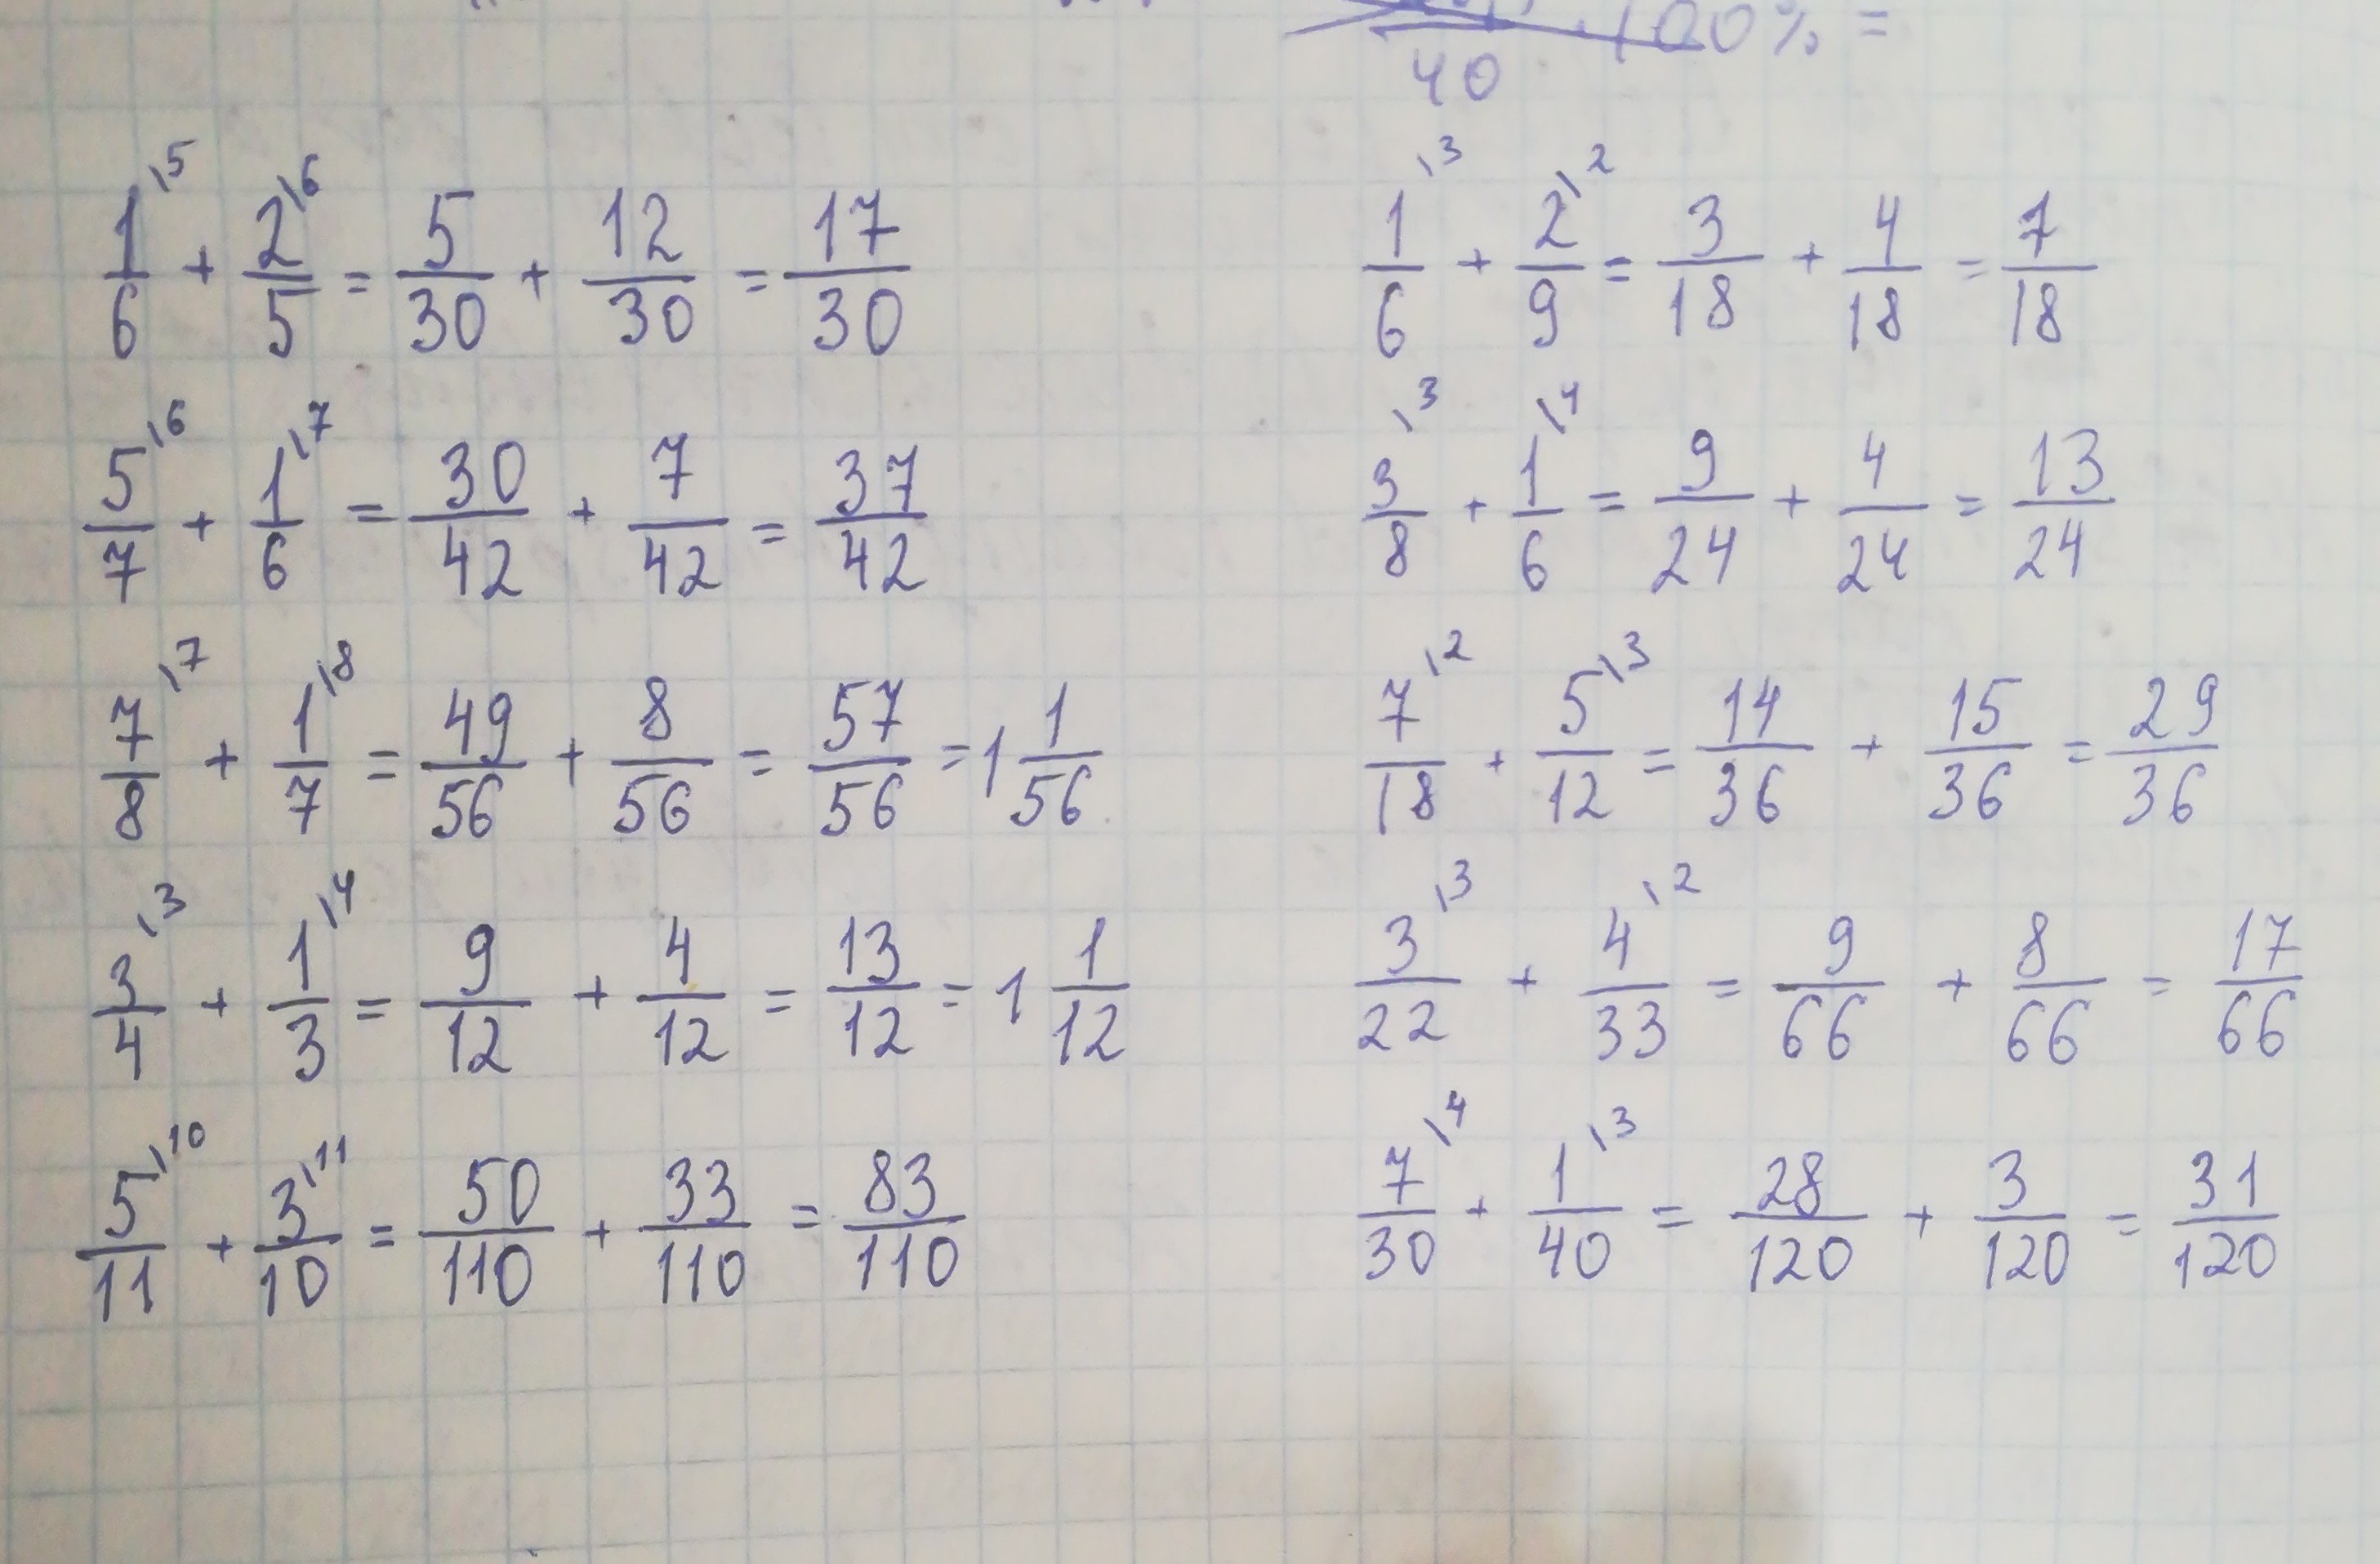 40 100% =
1/6 \5 + 2/5 \6 = 5/30 + 12/30 = 17/30
5/7 \6 + 1/6 \7 = 30/42 + 7/42 = 37/42
7/8 \7 + 1/7 \8 = 49/56 + 8/56 = 57/56 = 1 1/56
3/4 \3 + 1/3 \4 = 9/12 + 4/12 = 13/12 = 1 1/12
5/11 \10 + 3/10 \11 = 50/110 + 33/110 = 83/110
1/6 \3 + 2/9 \2 = 3/18 + 4/18 = 7/18
3/8 \3 + 1/6 \4 = 9/24 + 4/24 = 13/24
7/18 \2 + 5/12 \3 = 14/36 + 15/36 = 29/36
3/22 \3 + 4/33 \2 = 9/66 + 8/66 = 17/66
7/30 \4 + 1/40 \3 = 28/120 + 3/120 = 31/120